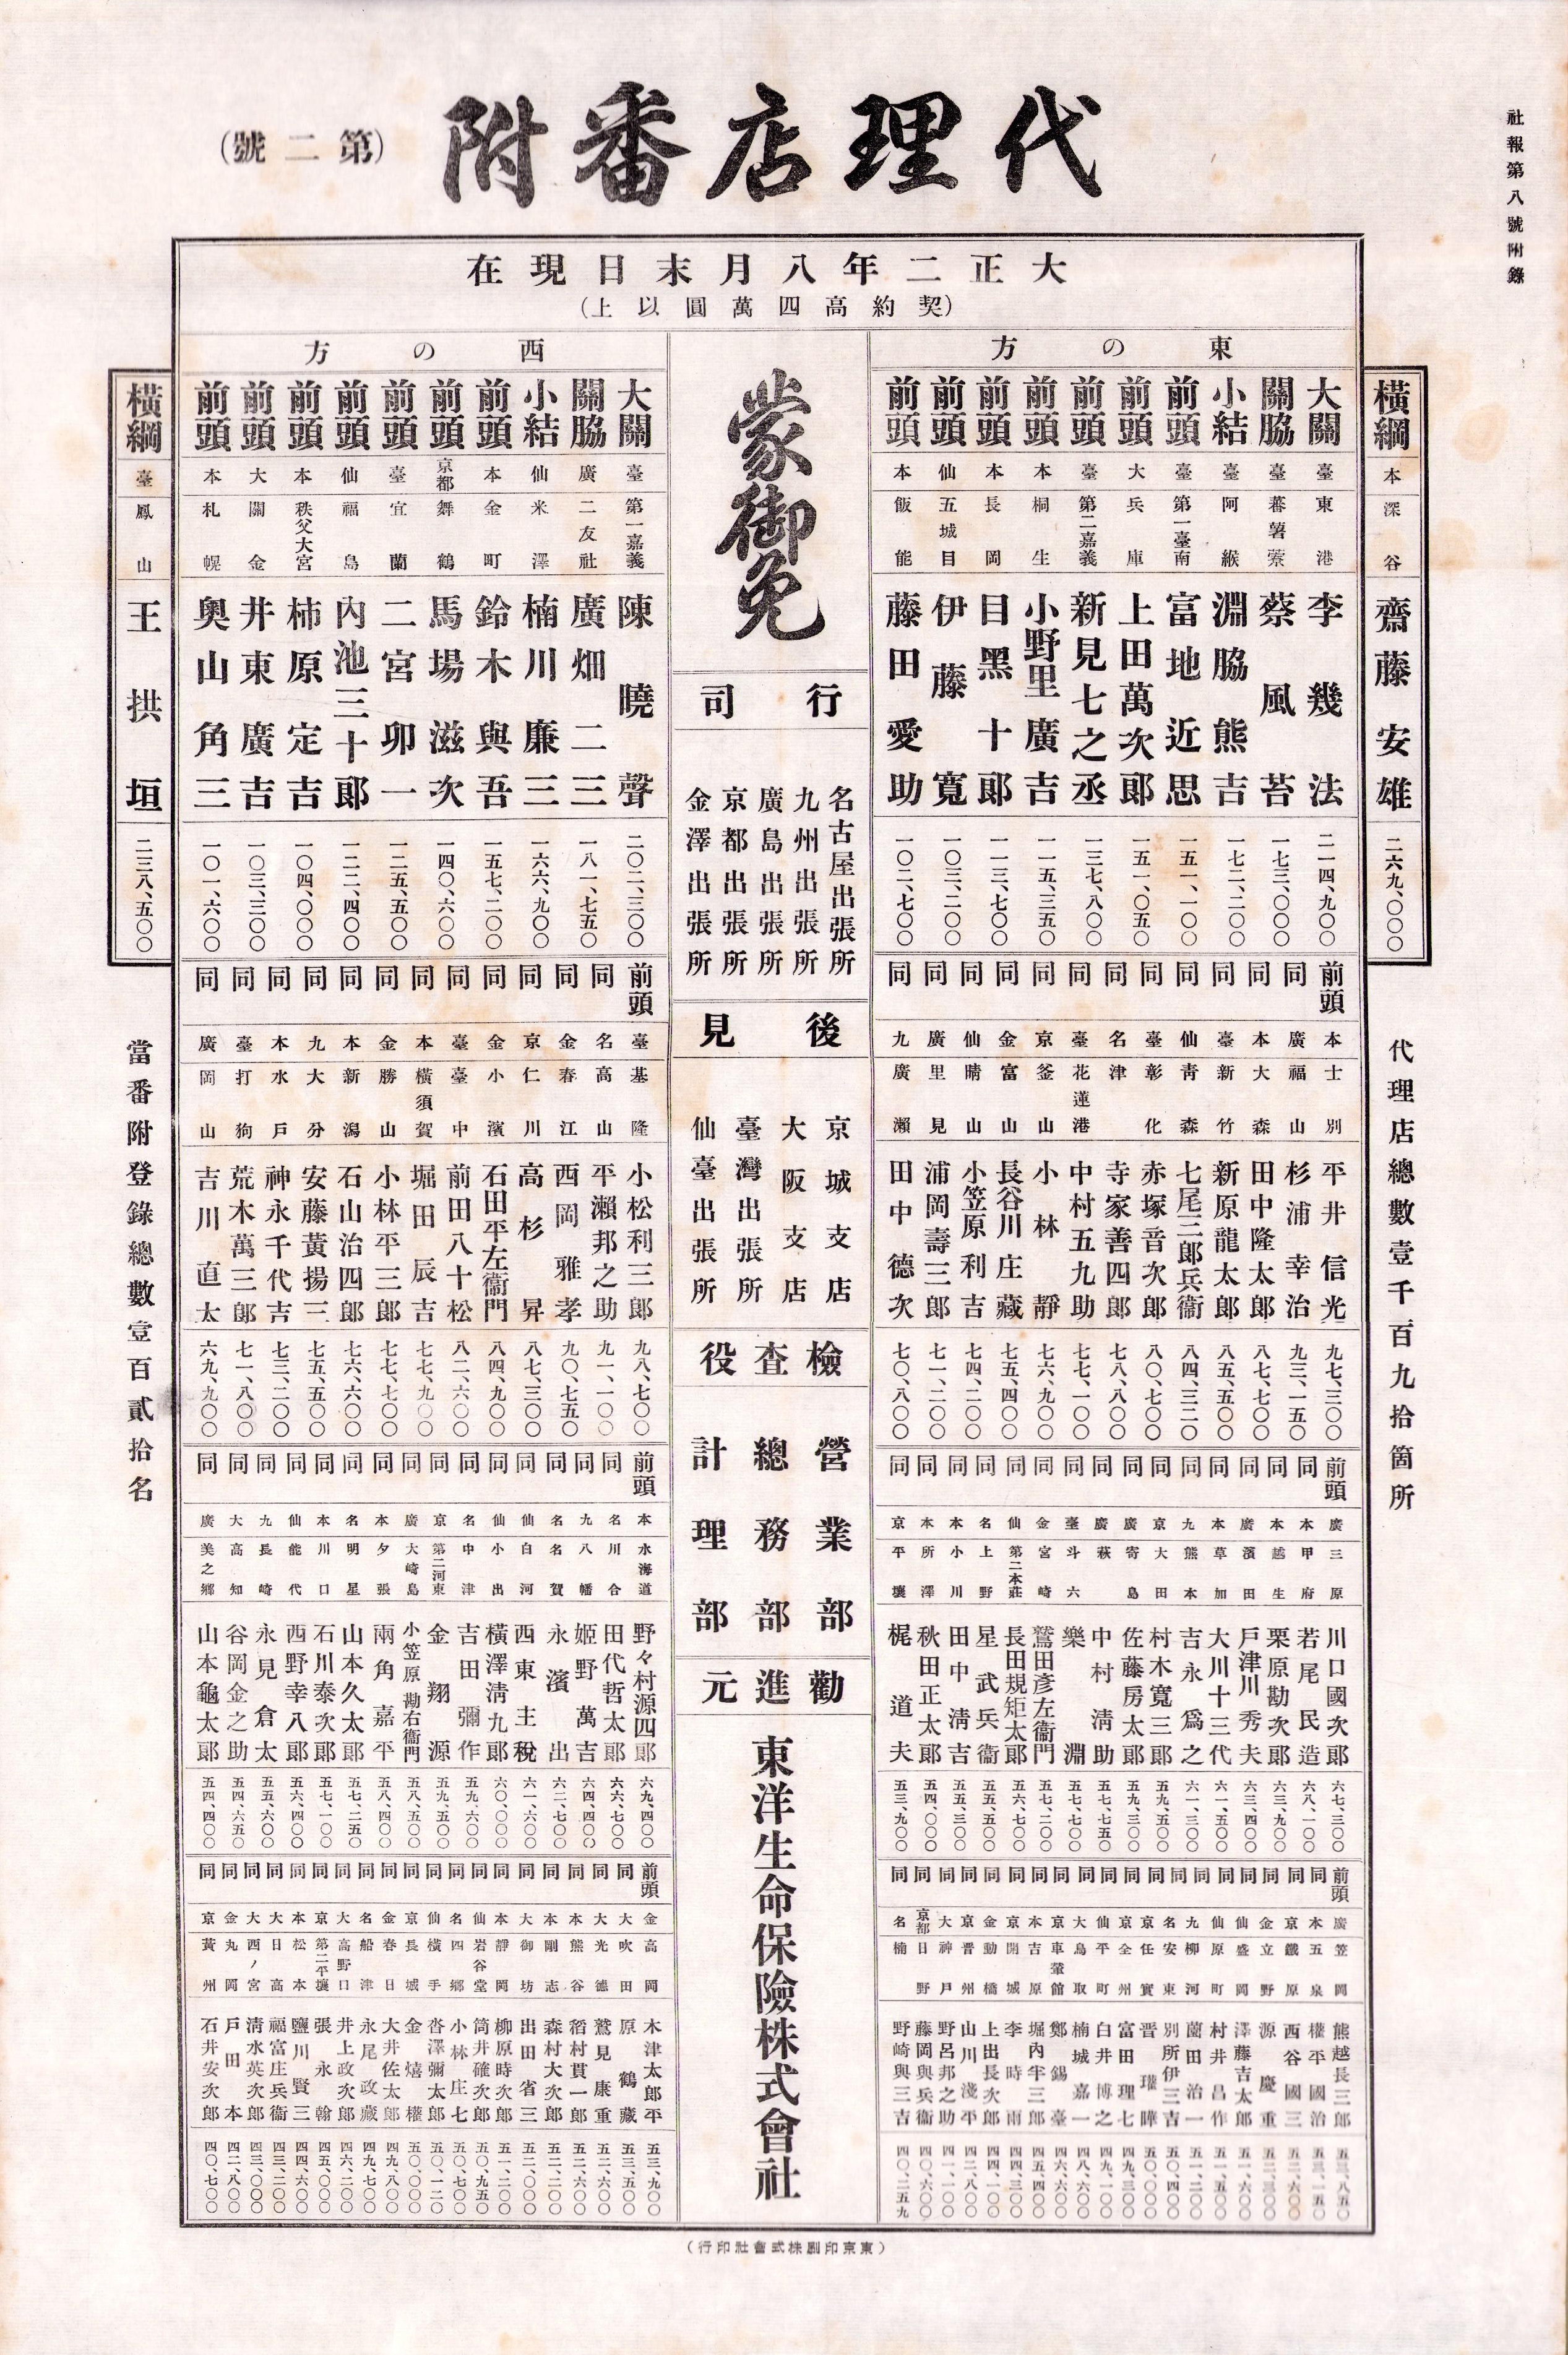 社報第八號附錄
代理店番附
（第二號）
大正二年八月末日現在
（契約高四萬圓以上）
橫綱 本 深谷 齋藤安雄 二六九、〇〇〇
代理店總數壹千百九拾箇所
東の方
大關 臺 東港 李幾法 二一四、九〇〇
關脇 臺 蕃薯藔 蔡風苔 一七三、〇〇〇
小結 臺 阿緱 淵脇熊吉 一七二、二〇〇
前頭 臺 第一臺南 富地近思 一五一、一〇〇
前頭 大 兵庫 上田萬次郎 一五一、〇五〇
前頭 臺 第二嘉義 新見七之丞 一三七、八〇〇
前頭 本 桐生 小野里廣吉 一一五、三五〇
前頭 本 長岡 目黑十郎 一一三、七〇〇
前頭 仙 五城目 伊藤寬 一〇三、二〇〇
前頭 本 飯能 藤田愛助 一〇二、七〇〇
前頭 本 士別 平井信光 九七、三〇〇
同 廣 福山 杉浦幸治 九三、一五〇
同 本 大森 田中隆太郎 八七、七〇〇
同 臺 新竹 新原龍太郎 八五、五〇〇
同 仙 靑森 七尾三郎兵衞 八四、三二〇
同 臺 彰化 赤塚音次郎 八〇、七〇〇
同 名 津 寺家善四郎 七八、八〇〇
同 臺 花蓮港 中村五九助 七七、一〇〇
同 京 釜山 小林靜 七六、九〇〇
同 金 富山 長谷川庄藏 七五、四〇〇
同 仙 晴山 小笠原利吉 七四、二〇〇
同 廣 里見 浦岡壽三郎 七一、二〇〇
同 九 廣瀨 田中德次 七〇、八〇〇
前頭 廣 三原 川口國次郎 六七、三〇〇
同 本 甲府 若尾民造 六八、一〇〇
同 本 越生 栗原勘次郎 六三、九〇〇
同 廣 濱田 戶津川秀夫 六三、四〇〇
同 本 草加 大川十三代 六一、五〇〇
同 九 熊本 吉永爲之 六一、三〇〇
同 京 大田 村木寬三郎 五九、五〇〇
同 廣 寄島 佐藤房太郎 五九、三〇〇
同 廣 萩 中村淸助 五七、七五〇
同 臺 斗六 樂淵 五七、七〇〇
同 金 宮崎 鷲田彥左衞門 五七、二〇〇
同 仙 第二本莊 長田規矩太郎 五六、七〇〇
同 名 上野 星武兵衞 五五、五〇〇
同 本 小川 田中淸吉 五五、三〇〇
同 本 所澤 秋田正太郎 五四、〇〇〇
同 京 平壤 梶道夫 五三、九〇〇
前頭 廣 笠岡 熊越長三郎 五三、八五〇
同 本 五泉 權平國治 五三、一五〇
同 京 鐵原 西谷國三 五二、六〇〇
同 金 立野 源慶重 五二、三〇〇
同 仙 盛岡 澤藤吉太郎 五一、六〇〇
同 仙 原町 村井昌作 五一、五〇〇
同 九 柳河 蘭田治一 五一、二〇〇
同 名 安東 別所伊三吉 五〇、四〇〇
同 京 任實 晋瓘曄 五〇、〇〇〇
同 京 全州 富田理七 四九、三〇〇
同 仙 平町 白井博之 四九、一〇〇
同 大 鳥取 楠城嘉一 四八、六〇〇
同 京 車輦館 鄭錫臺 四六、六〇〇
同 本 吉原 堀內半三郎 四五、四〇〇
同 京 開城 李時雨 四四、三〇〇
同 金 動橋 上出長次郎 四四、一〇〇
同 京 晋州 山川淺平 四二、八〇〇
同 大 神戶 野呂邦之助 四一、一〇〇
同 京都 日野 藤岡與兵衞 四〇、六〇〇
同 名 楠 野崎與三吉 四〇、二五九
蒙御免
行司
名古屋出張所
九州出張所
廣島出張所
京都出張所
金澤出張所
後見
京城支店
大阪支店
臺灣出張所
仙臺出張所
檢査役
營業部
總務部
計理部
勸進元
東洋生命保險株式會社
西の方
大關 臺 第一嘉義 陳曉聲 二〇二、三〇〇
關脇 廣 二友社 廣畑二三 一八一、七五〇
小結 仙 米澤 楠川廉三 一六六、九〇〇
前頭 本 金町 鈴木與吾 一五七、二〇〇
前頭 京都 舞鶴 馬場滋次 一四〇、六〇〇
前頭 臺 宜蘭 二宮卯一 一二五、五〇〇
前頭 仙 福島 內池三十郎 一二二、四〇〇
前頭 本 秩父大宮 柿原定吉 一〇四、〇〇〇
前頭 大 關金 井東廣吉 一〇三、三〇〇
前頭 本 札幌 奧山角三 一〇一、六〇〇
前頭 臺 基隆 小松利三郎 九八、七〇〇
同 名 高山 平瀨邦之助 九一、一〇〇
同 金 春江 西岡雅孝 九〇、七五〇
同 京 仁川 高杉昇 八七、三〇〇
同 金 小濱 石田平左衞門 八四、九〇〇
同 臺 臺中 前田八十松 八二、六〇〇
同 本 橫須賀 堀田辰吉 七七、九〇〇
同 金 勝山 小林平三郎 七七、七〇〇
同 本 新潟 石山治四郎 七六、六〇〇
同 九 大分 安藤黃揚三 七五、五〇〇
同 本 水戶 神永千代吉 七三、二〇〇
同 臺 打狗 荒木萬三郎 七一、八〇〇
同 廣 岡山 吉川直太 六九、九〇〇
前頭 本 水海道 野々村源四郎 六九、四〇〇
同 名 川合 田代哲太郎 六六、七〇〇
同 九 八幡 姬野萬吉 六四、四〇〇
同 名 名賀 永濱出 六二、七〇〇
同 仙 白河 西東主稅 六一、六〇〇
同 仙 小出 橫澤淸九郎 六〇、〇〇〇
同 名 中津 吉田彌作 五九、六〇〇
同 京 第二河東 金翔源 五九、五〇〇
同 廣 大崎島 小笠原勘右衞門 五八、五〇〇
同 本 夕張 兩角嘉平 五八、四〇〇
同 名 明星 山本久太郎 五七、二五〇
同 本 川口 石川泰次郎 五七、一〇〇
同 仙 能代 西野幸八郎 五六、四〇〇
同 九 長崎 永見倉太 五五、六〇〇
同 大 高知 谷岡金之助 五四、六五〇
同 廣 美之鄕 山本龜太郎 五四、四〇〇
前頭 金 高岡 木津太郎平 五三、九〇〇
同 大 吹田 原鶴藏 五三、五〇〇
同 大 光德 鷲見康重 五二、六〇〇
同 本 熊谷 稻村貫一郎 五二、六〇〇
同 本 剛志 森村大次郎 五二、二〇〇
同 大 御坊 出田省三 五二、〇〇〇
同 本 靜岡 柳原時次郎 五一、二〇〇
同 仙 岩谷堂 筒井確次郎 五〇、九五〇
同 名 四鄕 小林庄七 五〇、七〇〇
同 仙 橫手 沓澤彌太郎 五〇、一二〇
同 京 長城 金熺權 五〇、〇〇〇
同 金 春日 大井佐太郎 四九、八〇〇
同 名 船津 永尾政藏 四九、七〇〇
同 大 高野口 井上政次郎 四六、二〇〇
同 京 第二平壤 張永翰 四五、〇〇〇
同 本 松本 鹽川賢三 四四、六〇〇
同 大 日高 福富庄兵衞 四三、二〇〇
同 大 西ノ宮 淸水英次郎 四三、〇〇〇
同 金 丸岡 戶田本 四二、八〇〇
同 京 黃州 石井安次郎 四〇、七〇〇
橫綱 臺 鳳山 王拱垣 二三八、五〇〇
當番附登錄總數壹百貳拾名
（東京印刷株式會社印行）